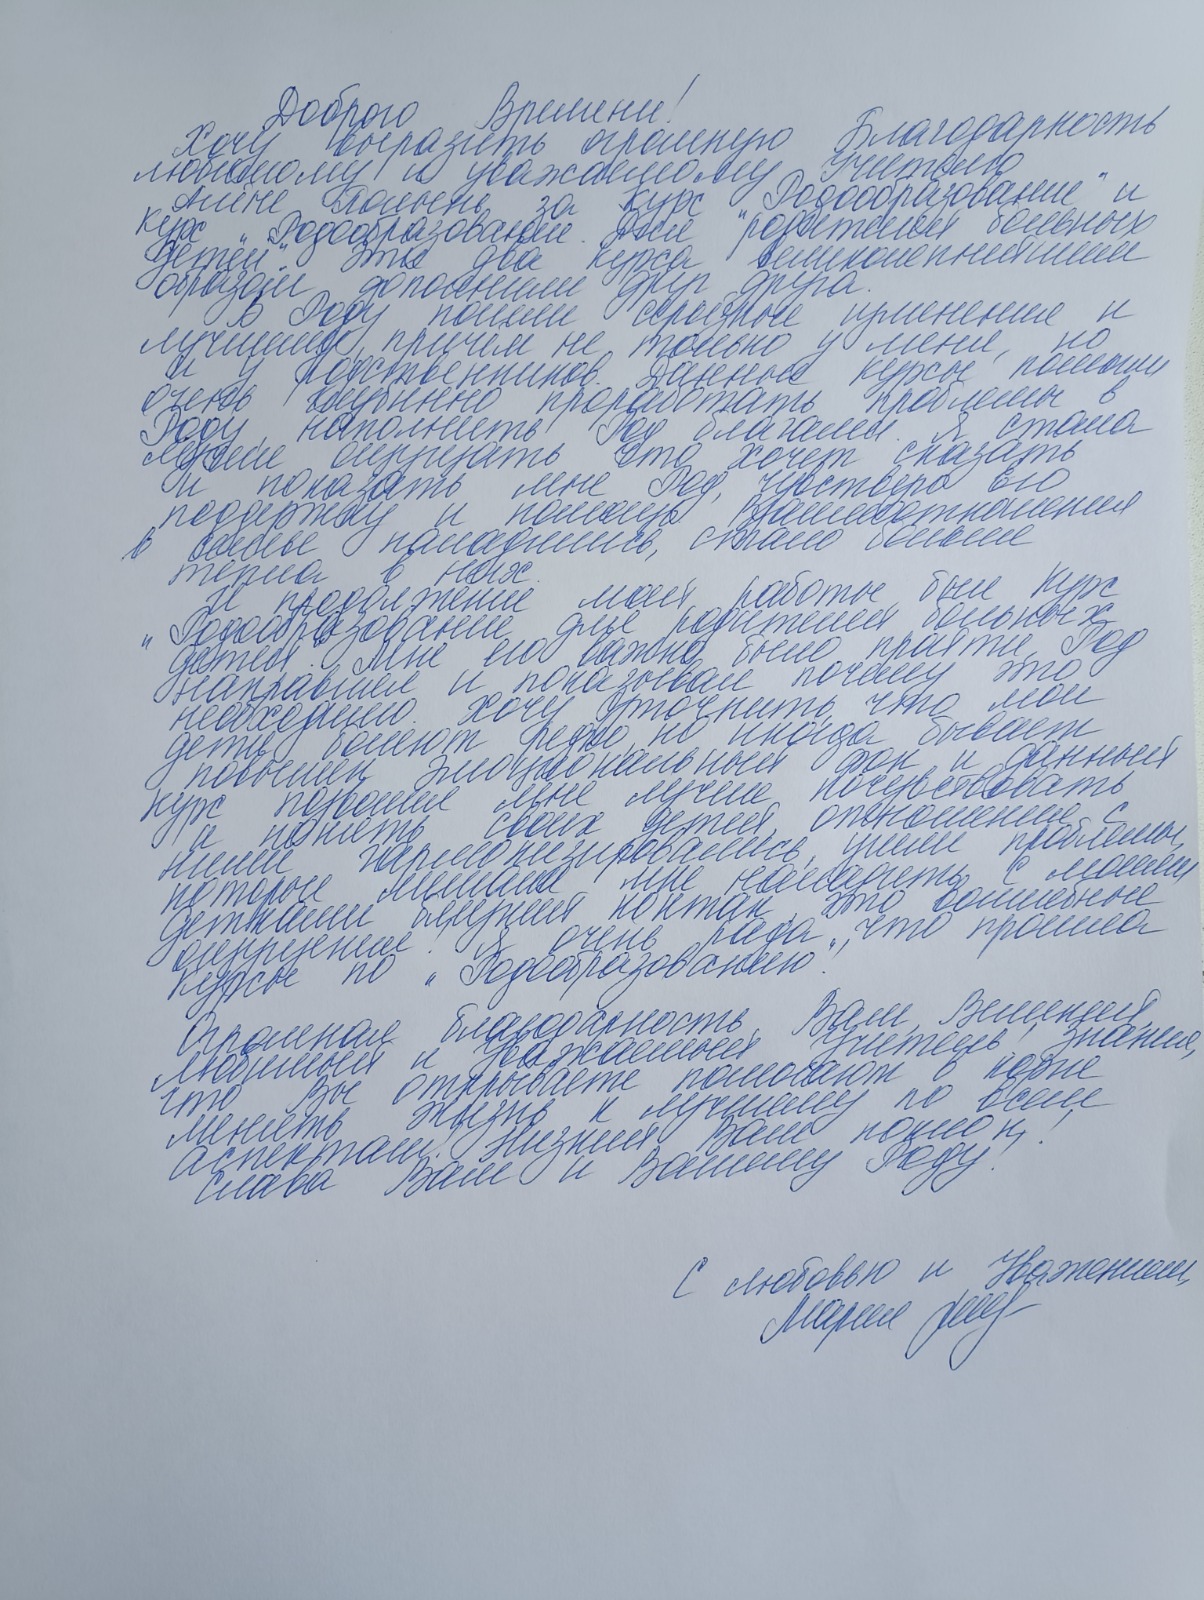 Доброго Времени!
Хочу выразить огромную Благодарность
любимому и уважаемому Учителю
Алёне Полынь за курс "Родообразование" и
курс "Родообразование. Для "родителей больных
детей". Эти два курса великолепнейшим
образом дополнили друг друга.
В Роду пошли серьёзные изменения к
лучшему, причем не только у меня, но
и у родственников. Данные курсы помогли
очень глубинно проработать проблемы в
Роду, наполнить Род благами. Я стала
лучше ощущать что хочет сказать
и показать мне Род, чувствую его
поддержку и помощь. Взаимоотношения
в семье наладились, стало больше
тепла в них.
И продолжение моей работы был курс
"Родообразование для родителей больных
детей". Мне его важно было пройти, Род
направлял и показывал почему это
необходимо. Хочу уточнить, что мои
дети болеют редко, но иногда бывает
повышен эмоциональный фон и данный
курс позволил мне лучше почувствовать
и понять своих детей, отношения с
ними гармонизировались, ушли проблемы,
которые мешали мне наладить с моими
детками близкий контакт. Это волшебные
ощущения! Я очень рада, что прошла
курсы по "Родообразованию".
Огромная благодарность Вам, Великий,
любимый и Уважаемый Учитель, знания,
что Вы открываете помогают в корне
менять жизнь к лучшему по всем
аспектам! Низкий Вам поклон!
Слава Вам и Вашему Роду!
С любовью и Уважением,
Мария